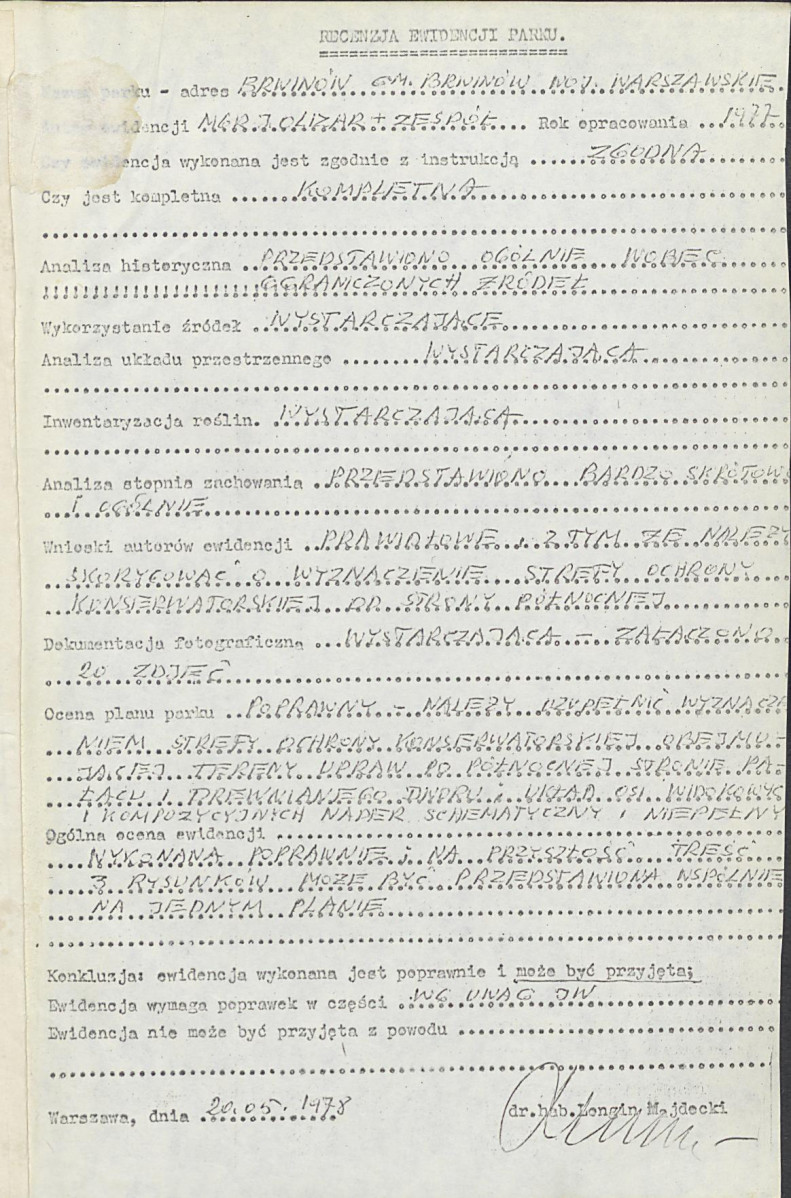 RECENZJA EWIDENCJI PARKU.
parku - adres BRWINÓW GM. BRWINÓW WOJ. WARSZAWSKIE
ewidencji MGR. J. OLIZAR + ZESPÓŁ... Rok opracowania ...1977
ewidencja wykonana jest zgodnie z instrukcją ......ZGODNA
Czy jest kompletna ...... KOMPLETNA
Analiza historyczna .. PRZEDSTAWIONO OGÓLNIE WOBEC
OGRANICZONYCH ŹRÓDEŁ
Wykorzystanie źródeł .. WYSTARCZAJĄCE
Analiza układu przestrzennego ........ WYSTARCZAJĄCA
Inwentaryzacja roślin. WYSTARCZAJĄCA
Analiza stopnia zachowania . PRZEDSTAWIONO BARDZO SKRÓTOWO
I OGÓLNIE
Wnioski autorów ewidencji .. PRAWIDŁOWE, Z TYM ŻE NALEŻY
SKORYGOWAĆ O WYZNACZENIE STREFY OCHRONY
KONSERWATORSKIEJ OD STRONY PÓŁNOCNEJ
Dokumentacja fotograficzna ... WYSTARCZAJĄCA - ZAŁĄCZONO
20 ZDJĘĆ
Ocena planu parku .. POPRAWNY - NALEŻY UZUPEŁNIĆ WYZNACZE
NIEM STREFY OCHRONY KONSERWATORSKIEJ OBEJMU-
JĄCEJ TERENY UPRAW PO PÓŁNOCNEJ STRONIE PA-
ŁACU I DREWNIANEGO DWORU i UKŁAD OSI WIDOKOWYC
I KOMPOZYCYJNYCH NADER SCHEMATYCZNY I NIEPEŁNY
Ogólna ocena ewidencji
WYKONANA POPRAWNIE i NA PRZYSZŁOŚĆ TREŚĆ
3 RYSUNKÓW MOŻE BYĆ PRZEDSTAWIONA WSPÓLNIE
NA JEDNYM PLANIE
Konkluzja: ewidencja wykonana jest poprawnie i może być przyjęta;
Ewidencja wymaga poprawek w części .. WG UWAG JW
Ewidencja nie może być przyjęta z powodu
Warszawa, dnia 20.05.1978
dr.hab.Longin Majdecki